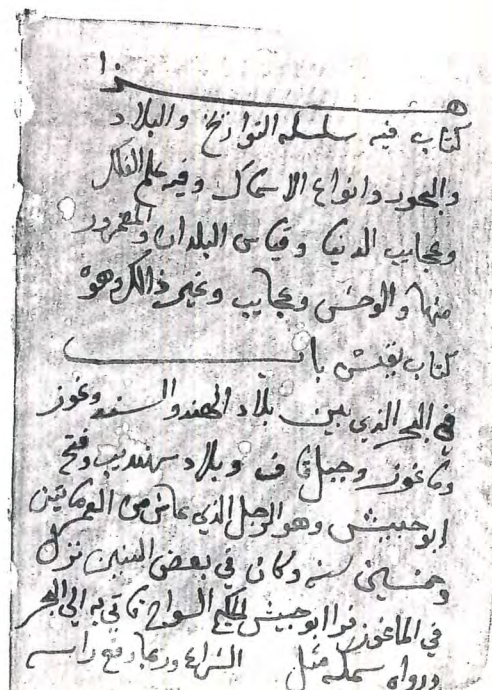 هـــذا
كتاب فيه سلسله التواريخ والبلاد
والبحور وانواع الاسماك وفيه علم الفلك
وعجايب الدنيا وقياس البلدان والمعمور
منها والوحش وعجايب وغير ذالك وهوه
كتاب نفيس باب
في البحر الذي بين بلاد الهند والسند وغوز
وماغوز وجبل قاف وبلاد سرنديب وفتح
ابو حبيش وهو الرجل الذي عاش من العمر مايتين
وخمسين سنه وكان في بعض السنين نزل
في الماغوز فوا ابو حبيش الحكيم السواح فاتي به الي البحر
ورواه سمكه مثل الشراع وربما رفع راسه